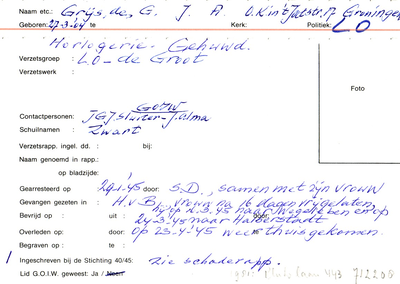 Naam etc.: Grijs, de, G. J. A. O.K. in 't Jatstr. 17 Groningen
Geboren: 27-3-'04 te Kerk: Politiek: LO
Horlogerie. Gehuwd.
Verzetsgroep : LO - de Groot
Verzetswerk :
Foto
GOIW
Contactpersonen: JGJ Sluiter - Jalma
Schuilnamen : Zwart
Verzetsrapp. ingel. dd. : bij:
Naam genoemd in rapp.:
op bladzijde:
Gearresteerd op : 29-1-45 door: S.D., samen met zijn vrouw
Gevangen gezeten in : H.v.B., vrouw na 16 dagen vrijgelaten,
hij op 2.3.45 naar Wegeleben en op
Bevrijd op : uit : door:
24-3-'45 naar Halberstadt
Overleden op: door: op 23-4-'45 weer thuisgekomen.
Begraven op : te :
Ingeschreven bij de Stichting 40/45: zie schaderapp.
Lid G.O.I.W. geweest: Ja / Neen